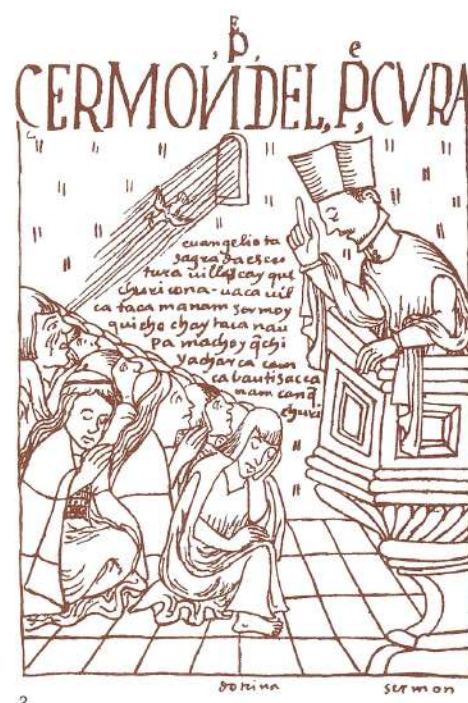 CERMON DEL, Pᵉ, CVRA
euangelio ta
sagrada escri
tura uillascay que
churicona - uaca uil
ca taca manam sermoy
quicho chaytaca nau
pa machoy q̃chi
yacharca cam
ca bautisacca
nam con q̃
churi
dotrina
sermon